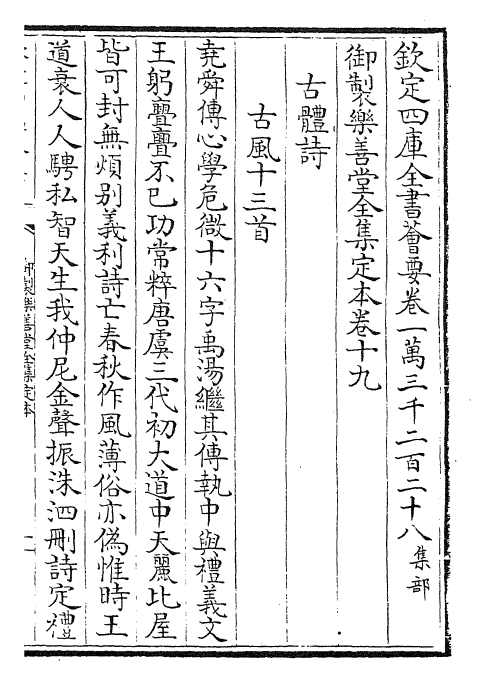 欽定四庫全書薈要卷一萬三千二百二十八集部
御製樂善堂全集定本卷十九
古體詩
古風十三首
堯舜傳心學危微十六字禹湯繼其傳執中與禮義文
王躬亹亹不已功常粹唐虞三代初大道中天麗比屋
皆可封無煩別義利詩亡春秋作風薄俗亦偽惟時王
道衰人人騁私智天生我仲尼金聲振洙泗刪詩定禮
御製樂善堂全集定本